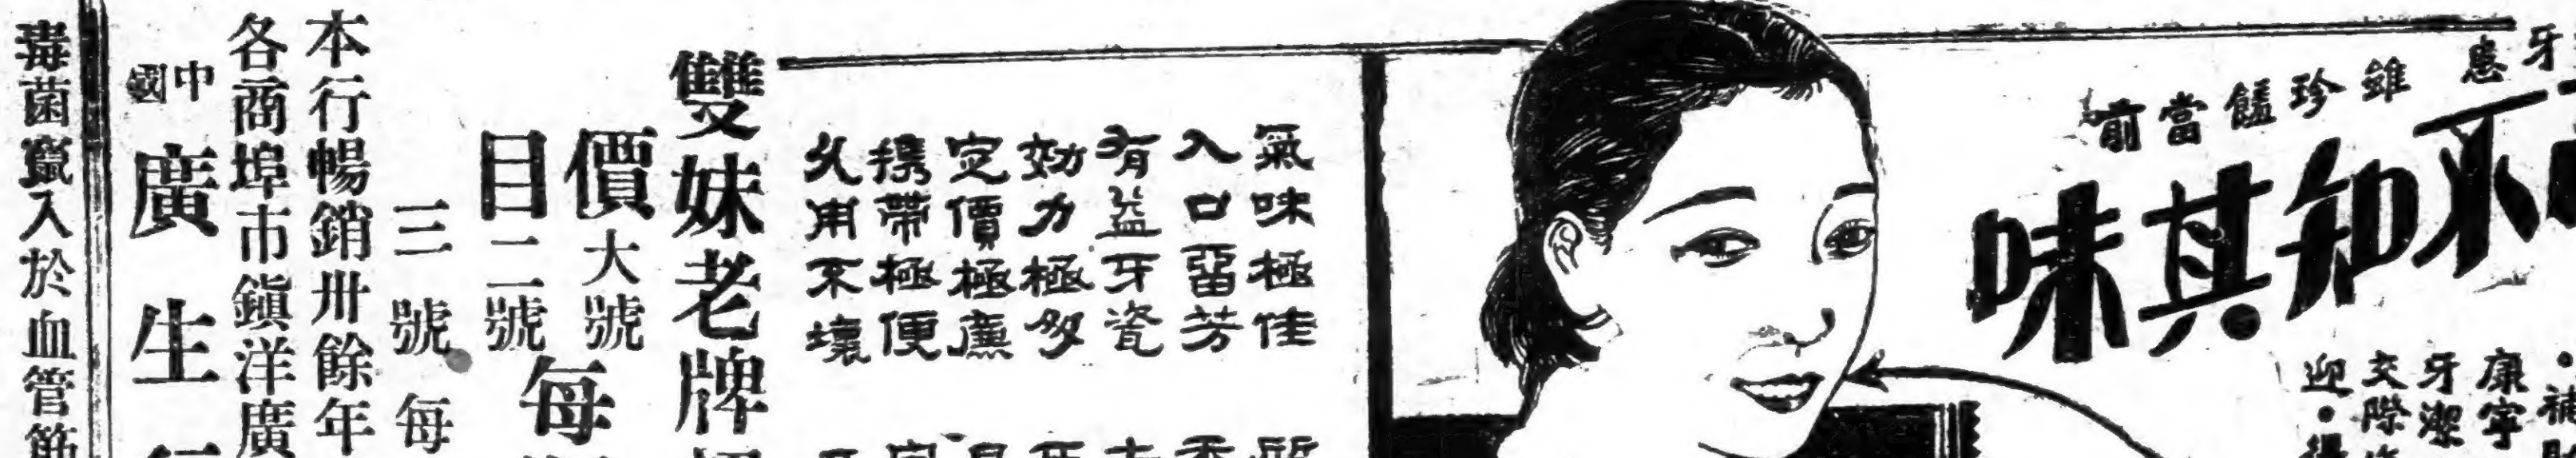 牙患
雖珍饈當前
不知其味
康寧
牙潔
交際
迎
氣味極佳
入口留芳
有益牙瓷
効力極多
定價極廉
携帶極便
久用不壞
雙妹老牌
價目
大號
二號
每
三號 每
本行暢銷卅餘年
各商埠市鎮洋廣
中國
廣生行
毒菌竄入於血管